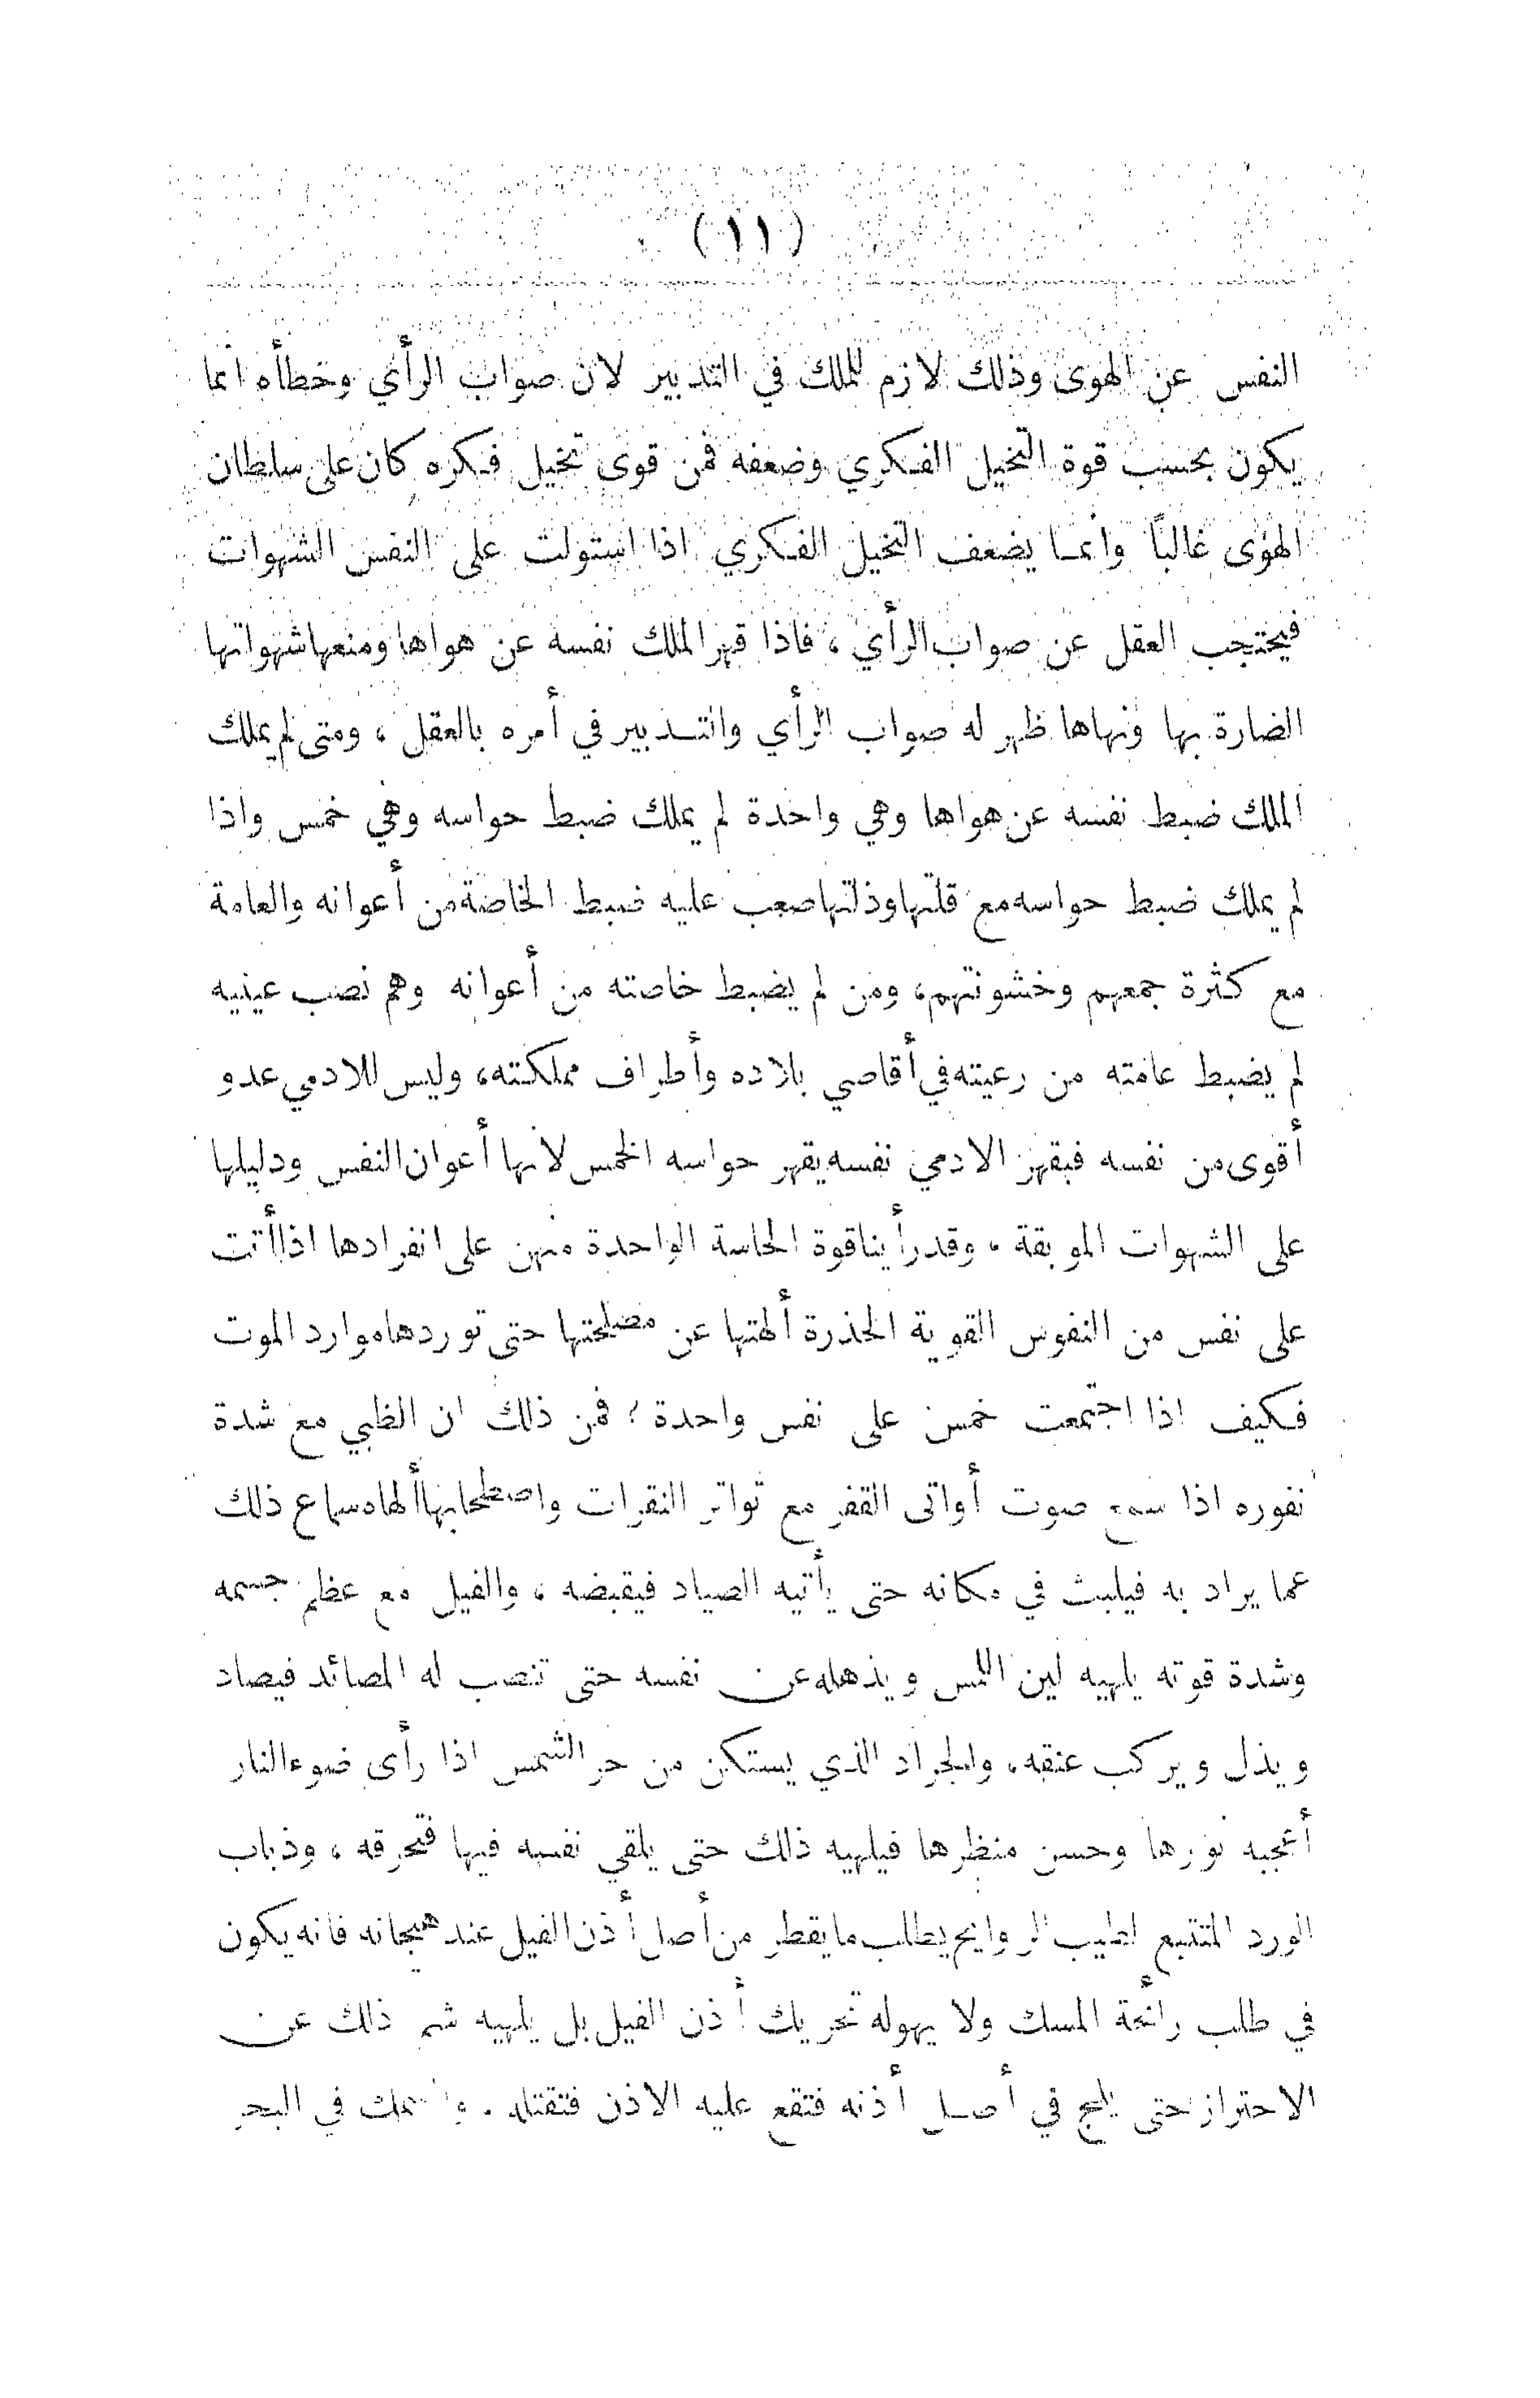 (١١)
النفس عن الهوى وذلك لازم للملك في التدبير لان صواب الرأي وخطأه انما
يكون بحسب قوة التخيل الفكري وضعفه فمن قوى تخيل فكره كان على سلطان
الهوى غالباً وانما يضعف التخيل الفكري اذا استولت على النفس الشهوات
فيحتجب العقل عن صواب الرأي ، فاذا قهر الملك نفسه عن هواها ومنعها شهواتها
الضارة بها ونهاها ظهر له صواب الرأي والتدبير في أمره بالعقل ، ومتى لم يملك
الملك ضبط نفسه عن هواها وهي واحدة لم يملك ضبط حواسه وهي خمس واذا
لم يملك ضبط حواسه مع قلتها وذلتها صعب عليه ضبط الخاصة من أعوانه والعامة
مع كثرة جمعهم وخشونتهم، ومن لم يضبط خاصته من أعوانه وهم نصب عينيه
لم يضبط عامته من رعيته في أقاصي بلاده وأطراف مملكته، وليس للادمي عدو
أقوى من نفسه فبقهر الادمي نفسه يقهر حواسه الخمس لانها أعوان النفس ودليلها
على الشهوات الموبقة ، وقد رأينا قوة الحاسة الواحدة منهن على انفرادها اذا أتت
على نفس من النفوس القوية الحذرة ألهتها عن مصلحتها حتى توردها موارد الموت
فكيف اذا اجتمعت خمس على نفس واحدة ؛ فمن ذلك ان الظبي مع شدة
نفوره اذا سمع صوت أواتى القفر مع تواتر النقرات واصطحابها ألهاه سماع ذلك
عما يراد به فيلبث في مكانه حتى يأتيه الصياد فيقبضه ، والفيل مع عظم جسمه
وشدة قوته يلهيه لين اللمس ويذهله عن نفسه حتى تنصب له المصائد فيصاد
ويذل ويركب عنقه، والجراد الذي يستكن من حر الشمس اذا رأى ضوء النار
أعجبه نورها وحسن منظرها فيلهيه ذلك حتى يلقي نفسه فيها فتحرقه ، وذباب
الورد المتتبع لطيب الروايح يطلب ما يقطر من أصل أذن الفيل عند هيجانه فانه يكون
في طلب رائحة المسك ولا يهوله تحريك أذن الفيل بل يلهيه شم ذلك عن
الاحتراز حتى يلج في أصل أذنه فتقع عليه الاذن فتقتله . والسمك في البحر